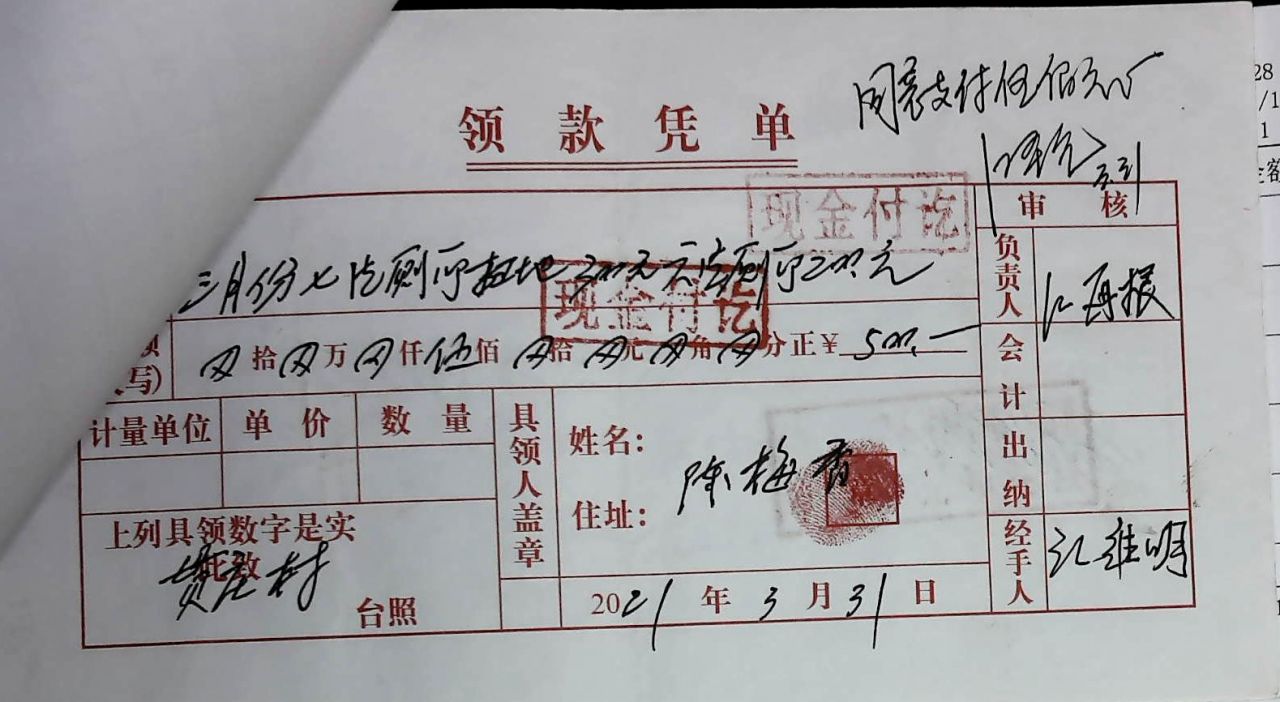 同意支付伍佰元
领款凭单
3/31
审核
现金付讫
三月份七 厕所 地300元 厕所200元
现金付讫
负责人 江再振
(写) 拾 万 仟 伍 佰 拾 元 角 分正 ¥ 500.-
会计
计量单位 单价 数量
具领人盖章
姓名: 陈梅香
住址:
出纳
上列具领数字是实
此致
村
台照
2021年3月31日
经手人 江维明
28
/1
1